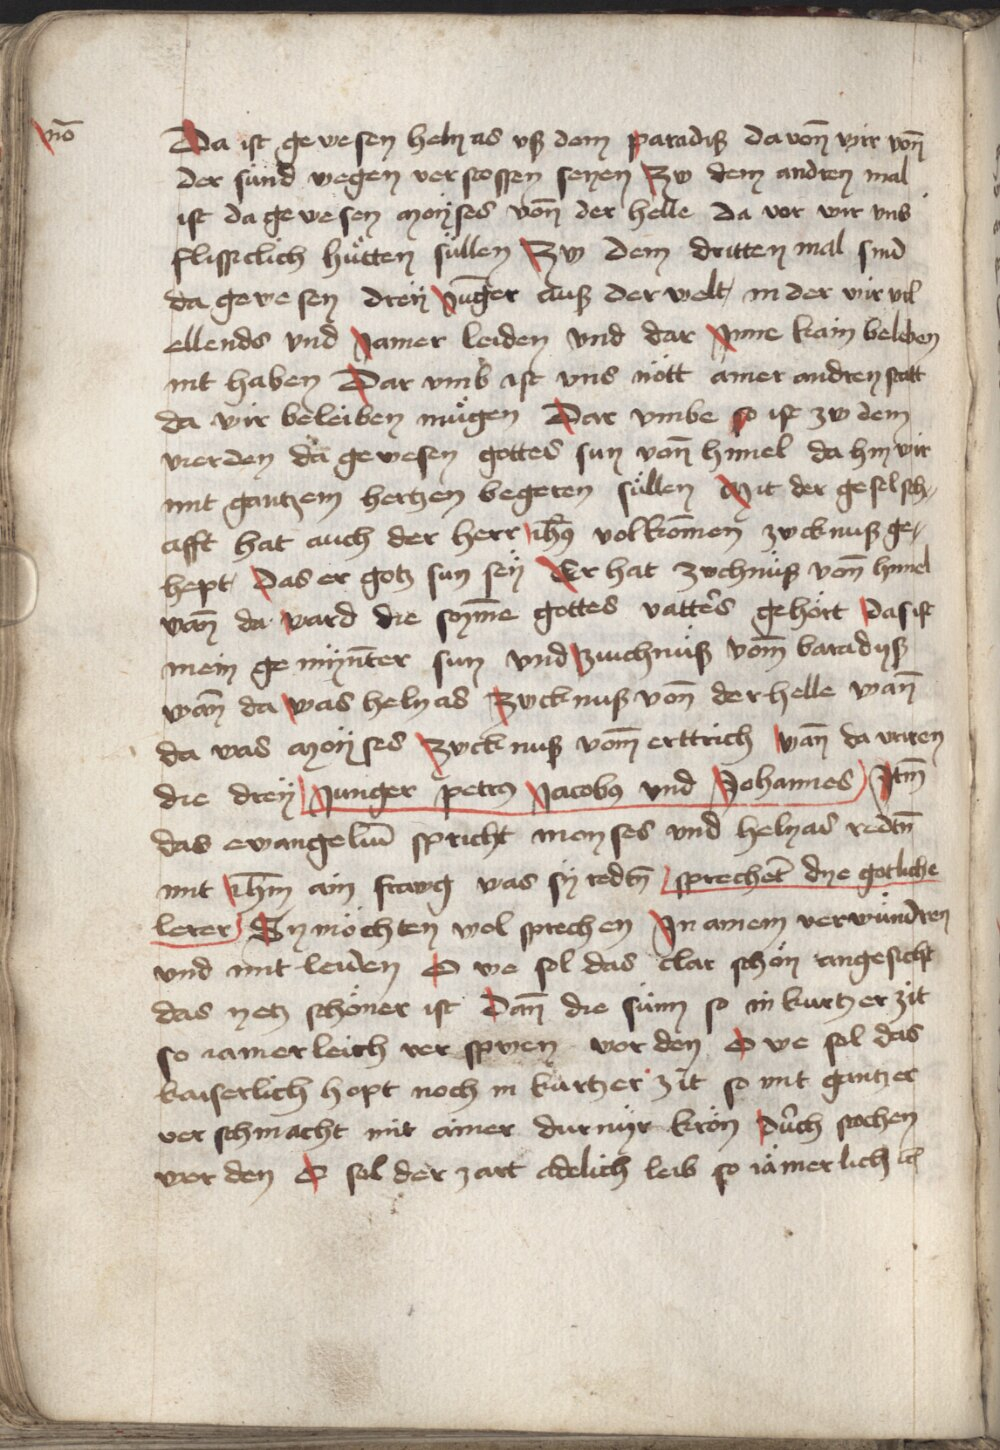 nō
Da ist gewesen helyas vß dem paradiß da von̄ wir von̄
der sünd wegen verstossen seyen Zw dem andren mal
ist da gewesen moÿses von̄ der helle Da vor wir vns
flissiclich hütten süllen Zw dem dritten mal sind
da gewesen dreÿ Jūnger auß der welt / in der wir vil
ellends vnd Jamer leiden vnd dar Jnne kain beleben
nit haben Dar vmb ist vns nött ainer andren statt
da wir beleiben mügen Dar vmbe so ist zw dem
vierden da gewesen gottes sun von̄ himel da hin wir
mit gantzem hertzen begeren süllen Mit der geselsch/
afft hat auch der herr ihs volkōmen zwcknuß ge/
hept Das er gotz sun seÿ Er hat zwchnüß von̄ himel
wan̄ da ward die stym̄e gottes vatters gehört Das ist
mein gemÿnter sun vnd zwichnüß vom̄ baradyß
wan̄ da was helyas Zwcknuß von̄ der helle wan̄
da was moÿses Zwcknuß vom̄ erttrich wan̄ da waren
die dreÿ Junger petrus Jacobus vnd Johannes Jtm̄
das ewangeliū spricht moyses vnd helyas redtn̄
mit ihm̄ ain frawg was sÿ redtn̄ sprechet̄ dye gotliche
lerer Sy möchten wol sprechen Jn ainem verwündren
vnd mit leiden O we sol das clar schön angesicht
das yetz schöner ist Dan̄ die sünn so in kurtzer zit
so iamerleich verspwen worden O we sol das
kaiserlich hopt noch in kurtzer zit so mit gantzer
verschmacht mit ainer durnÿr krön dūrch stochen
worden O sol der zart adelich leib so iämerlich ich